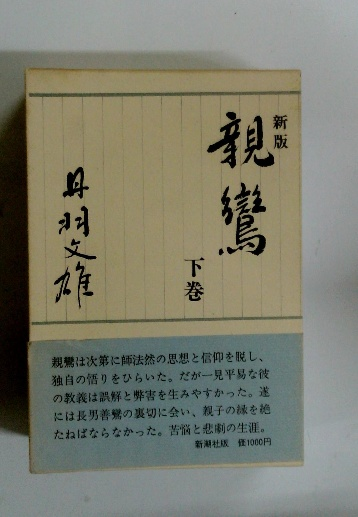 新版
親鸞
下巻
丹羽文雄
親鸞は次第に師法然の思想と信仰を脱し、
独自の悟りをひらいた。だが一見平易な彼
の教義は誤解と弊害を生みやすかった。遂
には長男善鸞の裏切に会い、親子の縁を絶
たねばならなかった。苦悩と悲劇の生涯。
新潮社版 価1000円